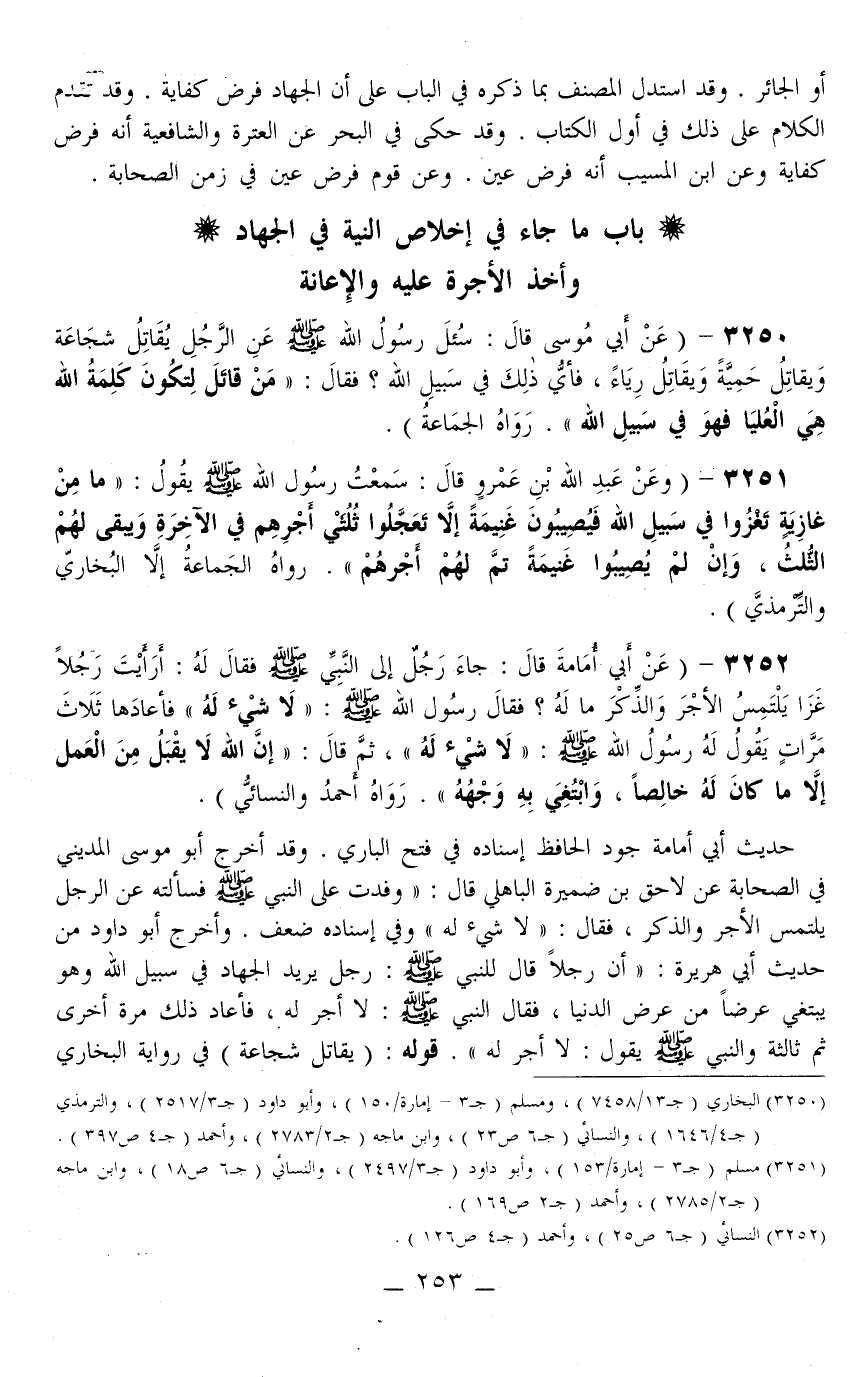 أو الجائر . وقد استدل المصنف بما ذكره في الباب على أن الجهاد فرض كفاية . وقد تقدم
الكلام على ذلك في أول الكتاب . وقد حكى في البحر عن العترة والشافعية أنه فرض
كفاية وعن ابن المسيب أنه فرض عين . وعن قوم فرض عين في زمن الصحابة .
باب ما جاء في إخلاص النية في الجهاد
وأخذ الأجرة عليه والإعانة
٣٢٥٠ – ( عَنْ أَبي مُوسى قالَ : سُئلَ رسولُ الله ﷺ عَنِ الرَّجُلِ يُقَاتِلُ شجَاعَة
وَيقاتِلُ حَمِيَّةً وَيقَاتِلُ رِيَاءً ، فأيُّ ذٰلِكَ في سَبيلِ الله ؟ فقالَ : « مَنْ قاتَلَ لِتكُونَ كَلِمَةُ الله
هِيَ الْعُليَا فهوَ في سَبيلِ الله » . رَوَاهُ الجمَاعةُ ) .
٣٢٥١ – ( وعَنْ عَبدِ الله بْنِ عَمْرٍو قالَ : سَمعْتُ رسولَ الله ﷺ يقُولُ : « ما مِنْ
غازِيَةٍ تَغْزُوا في سَبيلِ الله فَيُصِيبُونَ غَنِيمَةً إلَّا تَعَجَّلُوا ثُلُثَيْ أَجْرِهِم في الآخِرَةِ وَيبقى لهُمْ
الثُّلثُ ، وَإنْ لمْ يُصِيبُوا غَنيمَةً تمَّ لهُمْ أَجْرهُمْ » . رواهُ الجَماعةُ إلَّا البُخاريّ
والتِّرْمذيَّ ) .
٣٢٥٢ – ( عَنْ أَبي أُمَامةَ قالَ : جاءَ رَجُلٌ إلى النَّبيِّ ﷺ فقالَ لَهُ : أَرَأَيْتَ رَجُلاً
غَزَا يَلْتَمِسُ الأجْرَ وَالذِّكْرَ ما لَهُ ؟ فقالَ رسول الله ﷺ : « لَا شيْء لَهُ » فأعادَها ثَلَاثَ
مَرَّاتٍ يَقُولُ لَهُ رسولُ الله ﷺ : « لَا شيْء لَهُ » ، ثمَّ قالَ : « إنَّ الله لَا يقْبَلُ مِنَ الْعَمل
إلَّا ما كانَ لَهُ خالِصاً ، وَابْتُغِيَ بِهِ وَجْهُهُ » . رَوَاهُ أَحمدُ والنسائيُّ ) .
حديث أبي أمامة جود الحافظ إسناده في فتح الباري . وقد أخرج أبو موسى المديني
في الصحابة عن لاحق بن ضميرة الباهلي قال : « وفدت على النبي ﷺ فسألته عن الرجل
يلتمس الأجر والذكر ، فقال : « لا شيء له » وفي إسناده ضعف . وأخرج أبو داود من
حديث أبي هريرة : « أن رجلاً قال للنبي ﷺ : رجل يريد الجهاد في سبيل الله وهو
يبتغي عرضاً من عرض الدنيا ، فقال النبي ﷺ : لا أجر له ، فأعاد ذلك مرة أخرى
ثم ثالثة والنبي ﷺ يقول : لا أجر له » . قوله : ( يقاتل شجاعة ) في رواية البخاري
(٣٢٥٠) البخاري ( جـ١٣/ ٧٤٥٨ ) ، ومسلم ( جـ٣ – إمارة/١٥٠ ) ، وأبو داود ( جـ٣/ ٢٥١٧ ) ، والترمذي
( جـ٤/ ١٦٤٦ ) ، والنسائي ( جـ٦ ص٢٣ ) ، وابن ماجه ( جـ٢/ ٢٧٨٣ ) ، وأحمد ( جـ٤ ص٣٩٧ ) .
(٣٢٥١) مسلم ( جـ٣ – إمارة/١٥٣ ) ، وأبو داود ( جـ٣/ ٢٤٩٧ ) ، والنسائي ( جـ٦ ص١٨ ) ، وابن ماجه
( جـ٢/ ٢٧٨٥ ) ، وأحمد ( جـ٢ ص١٦٩ ) .
(٣٢٥٢) النسائي ( جـ٦ ص٢٥ ) ، وأحمد ( جـ٤ ص١٢٦ ) .
_ ٢٥٣ _